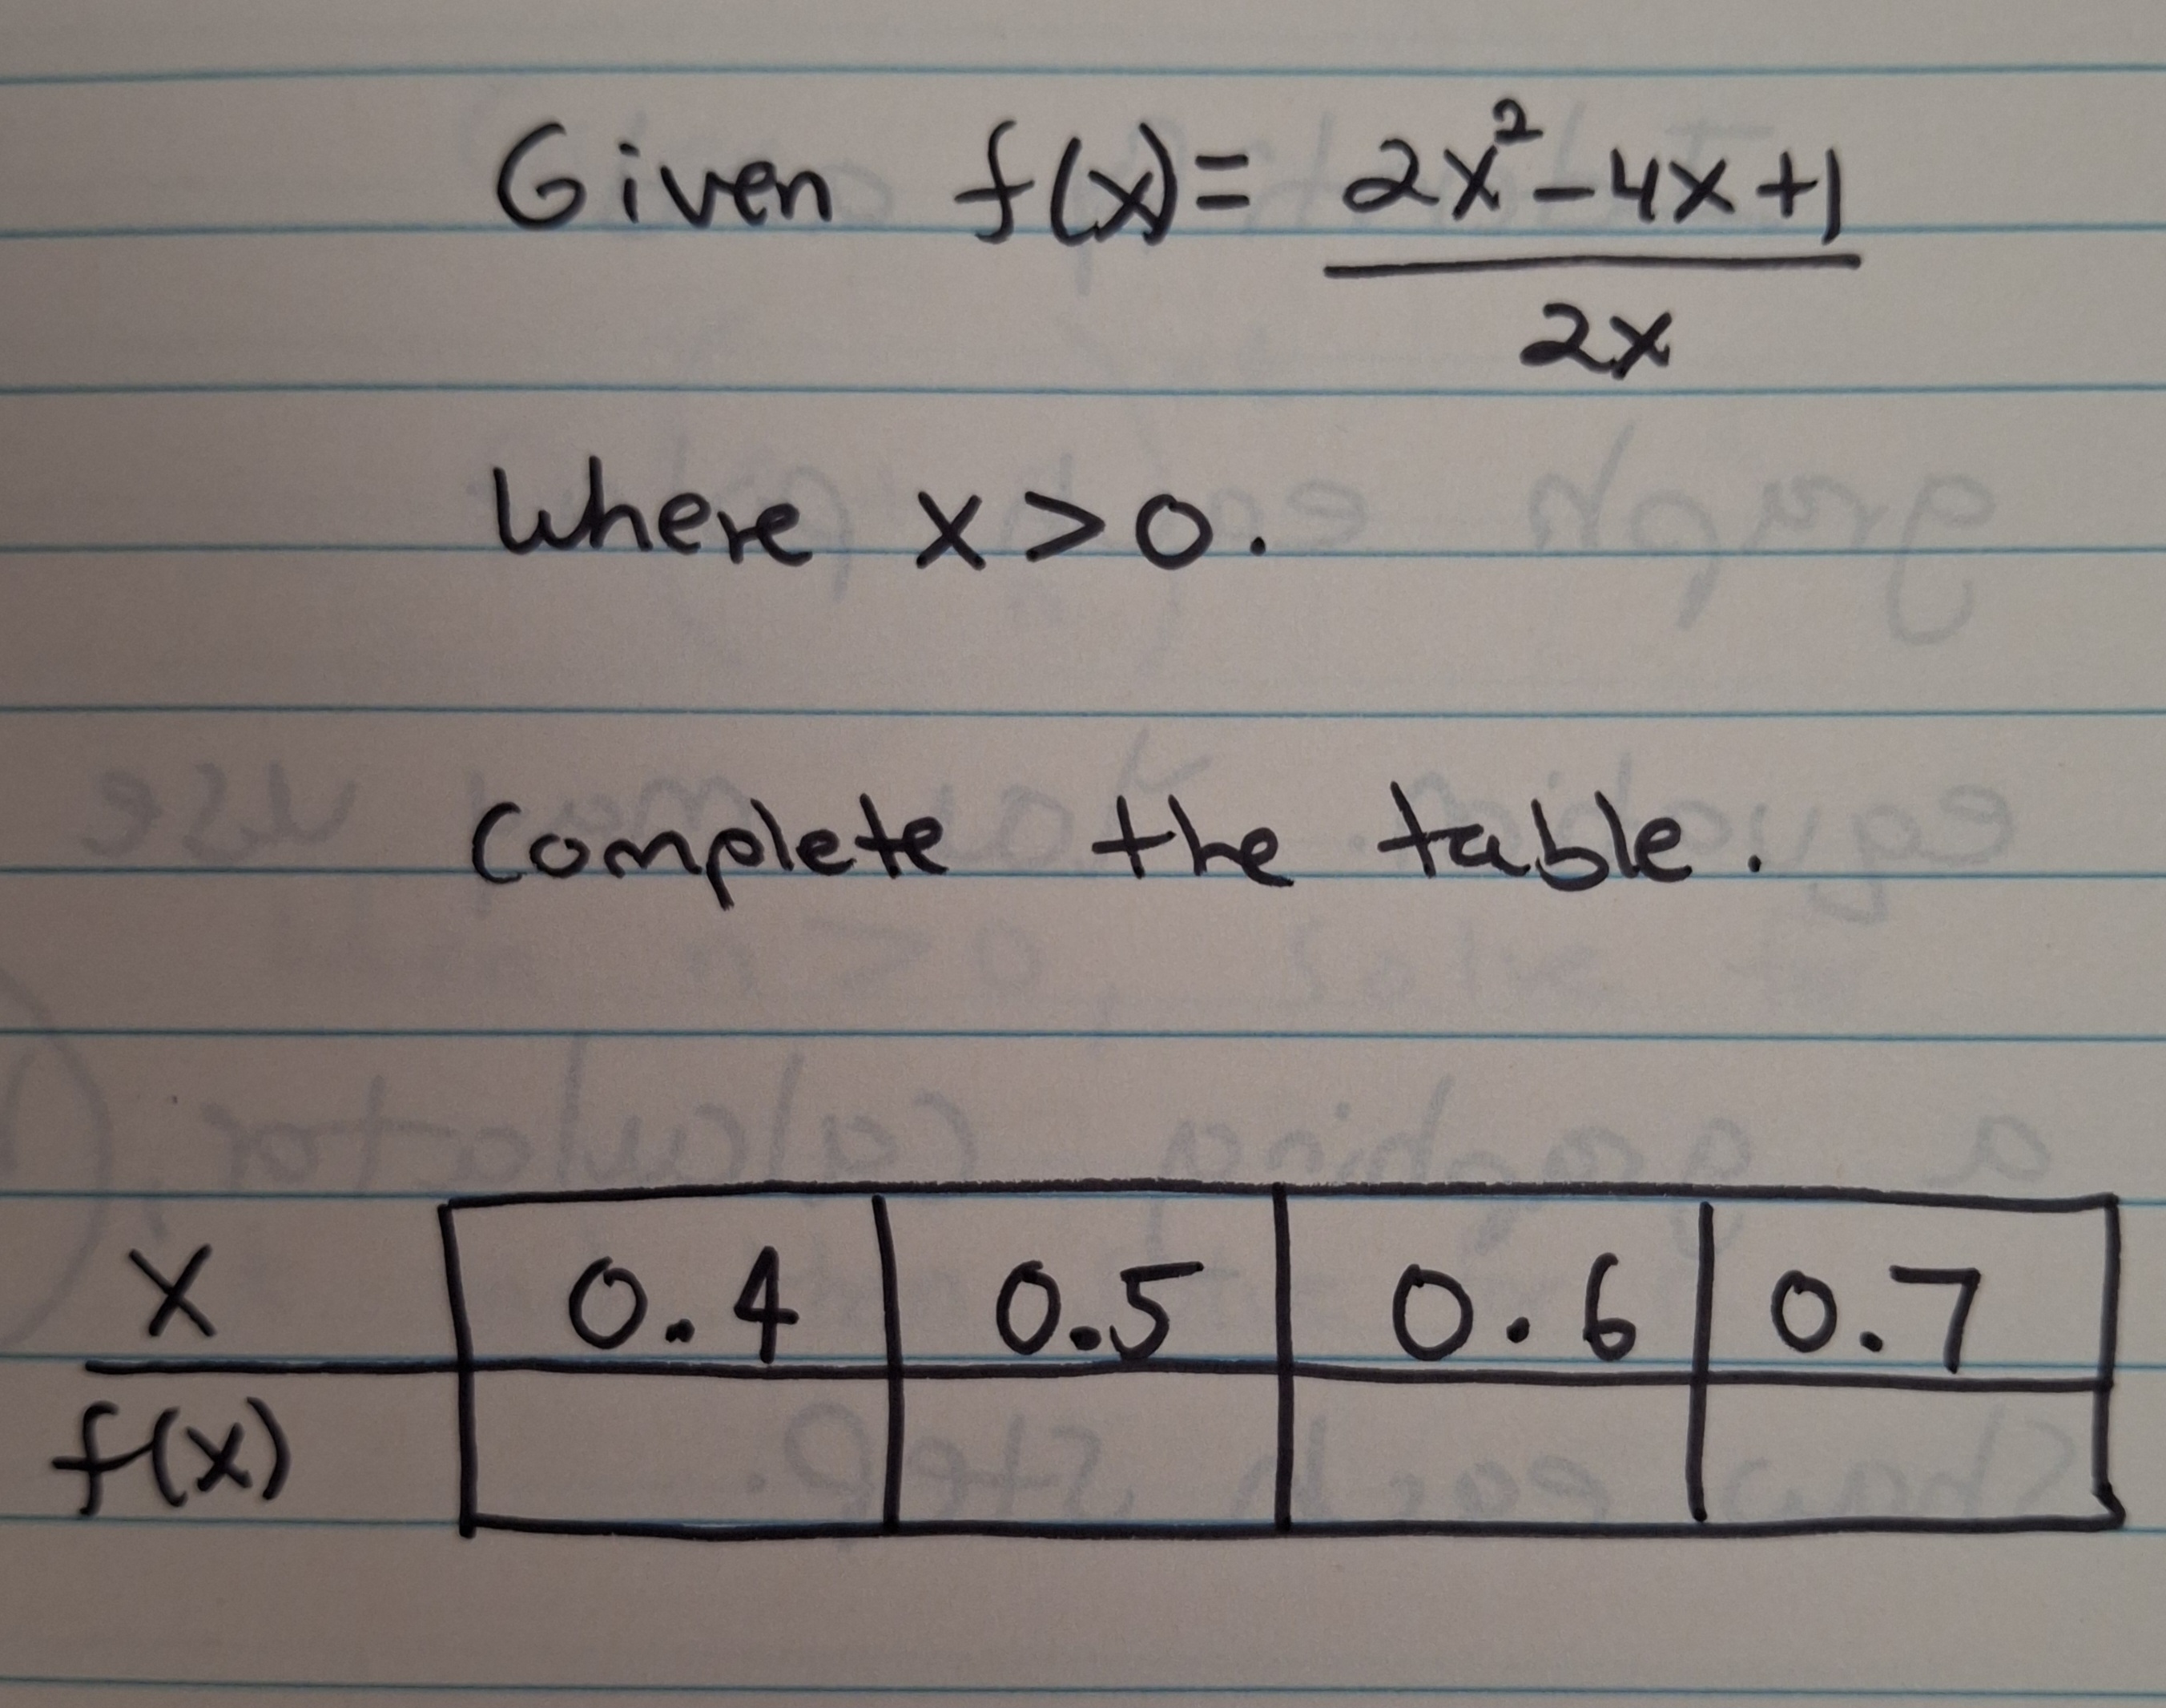 Given f(x)= 2x²-4x+1
2x
Where x>0.
Complete the table.
x 0.4 0.5 0.6 0.7
f(x)